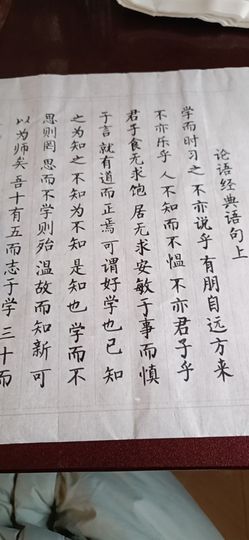 论语经典语句上
学而时习之不亦说乎有朋自远方来
不亦乐乎人不知而不愠不亦君子乎
君子食无求饱居无求安敏于事而慎
于言就有道而正焉可谓好学也已知
之为知之不知为不知是知也学而不
思则罔思而不学则殆温故而知新可
以为师矣吾十有五而志于学三十而